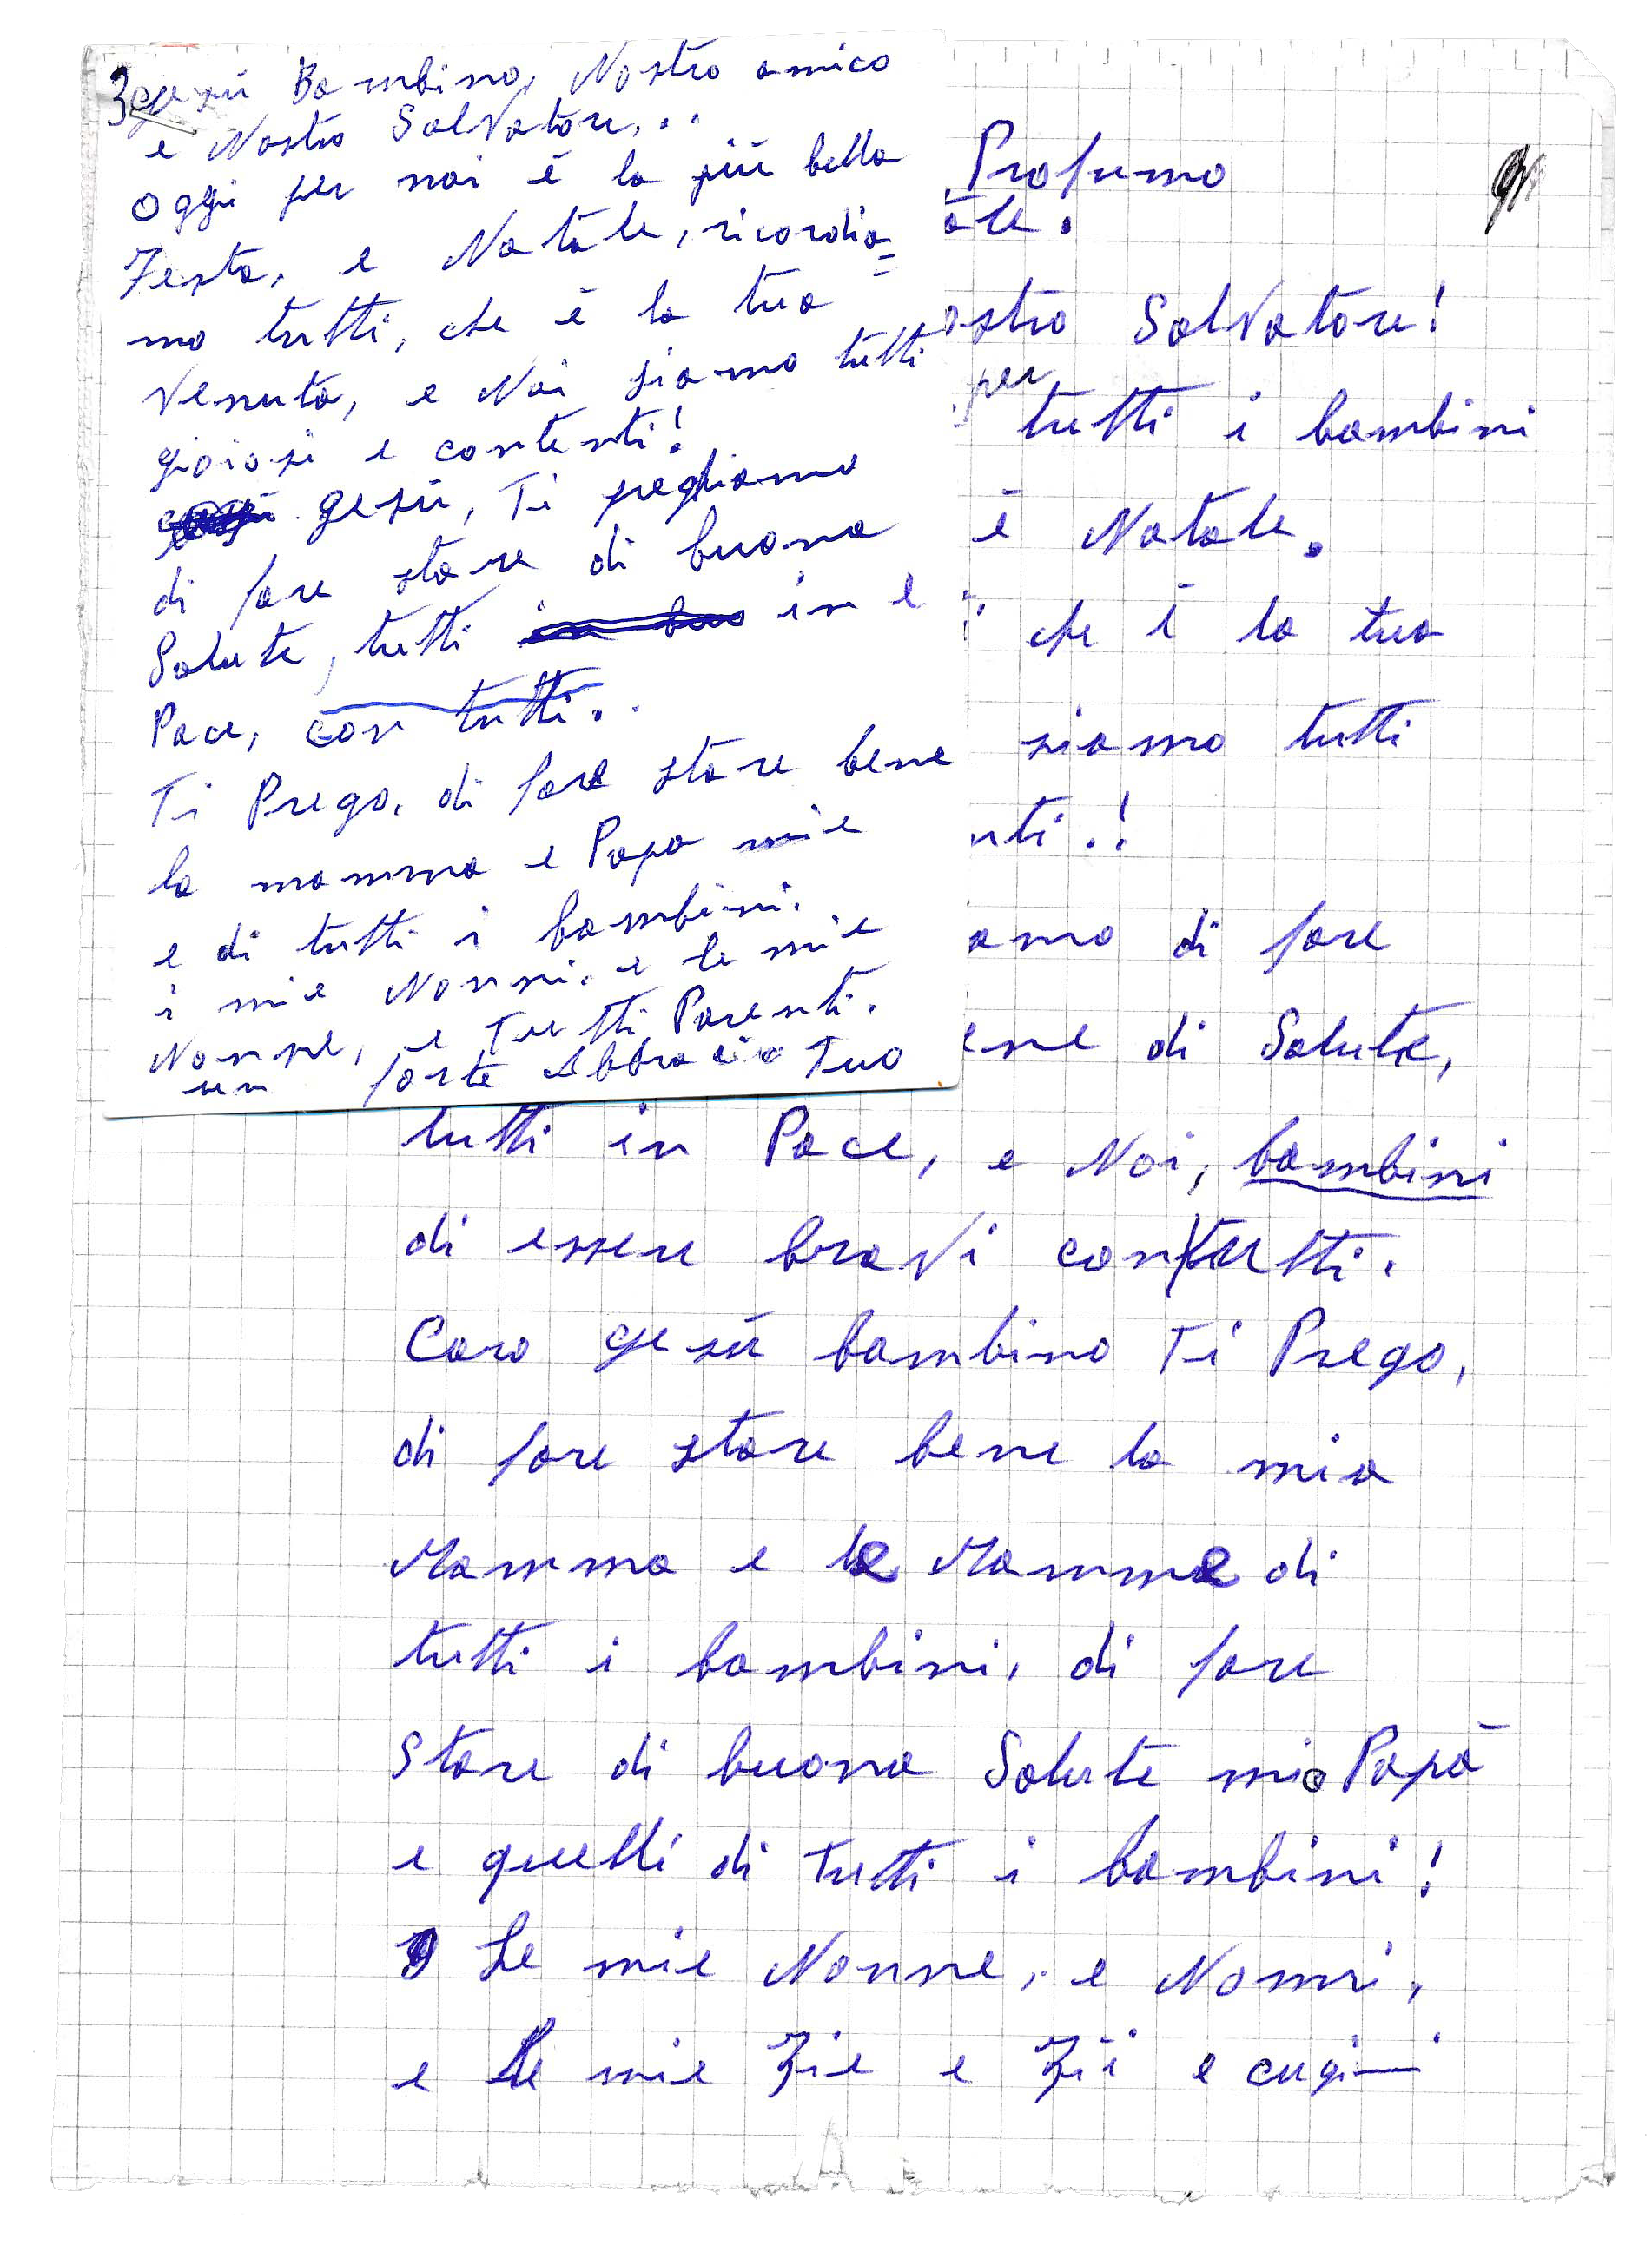 3 Gesù Bambino, Nostro amico
e Nostro SalVatore...
oggi per noi è la più bella
Festa, e Natale, ricordia=
mo tutti, che è la tua
Venuta, e Noi siamo tutti
gioiosi e contenti!
gesù, Ti preghiamo
di fare stare di buona
Salute, tutti in e
Pace, con tutti..
Ti Prego, di fare stare bene
la mamma e Papa mie
e di tutti i bambini.
i mie Nonni. e le mie
Nonne, e Tutti Parenti.
un forte Abbraccio Tuo
Profumo
ale.
ostro SalVatore!
per
tutti i bambini
è Natale.
che è la tua
siamo tutti
nti.!
amo di fare
ene di Salute,
tutti in Pace, e Noi, bambini
di essere braVi con tutti.
Caro gesù bambino Ti Prego,
di fare stare bene la mia
Mamma e le Mamme di
tutti i bambini, di fare
Stare di buona Salute mio Papà
e quelli di Tutti i bambini!
Le mie Nonne, e Nonni,
e le mie Zie e Zii e cugini